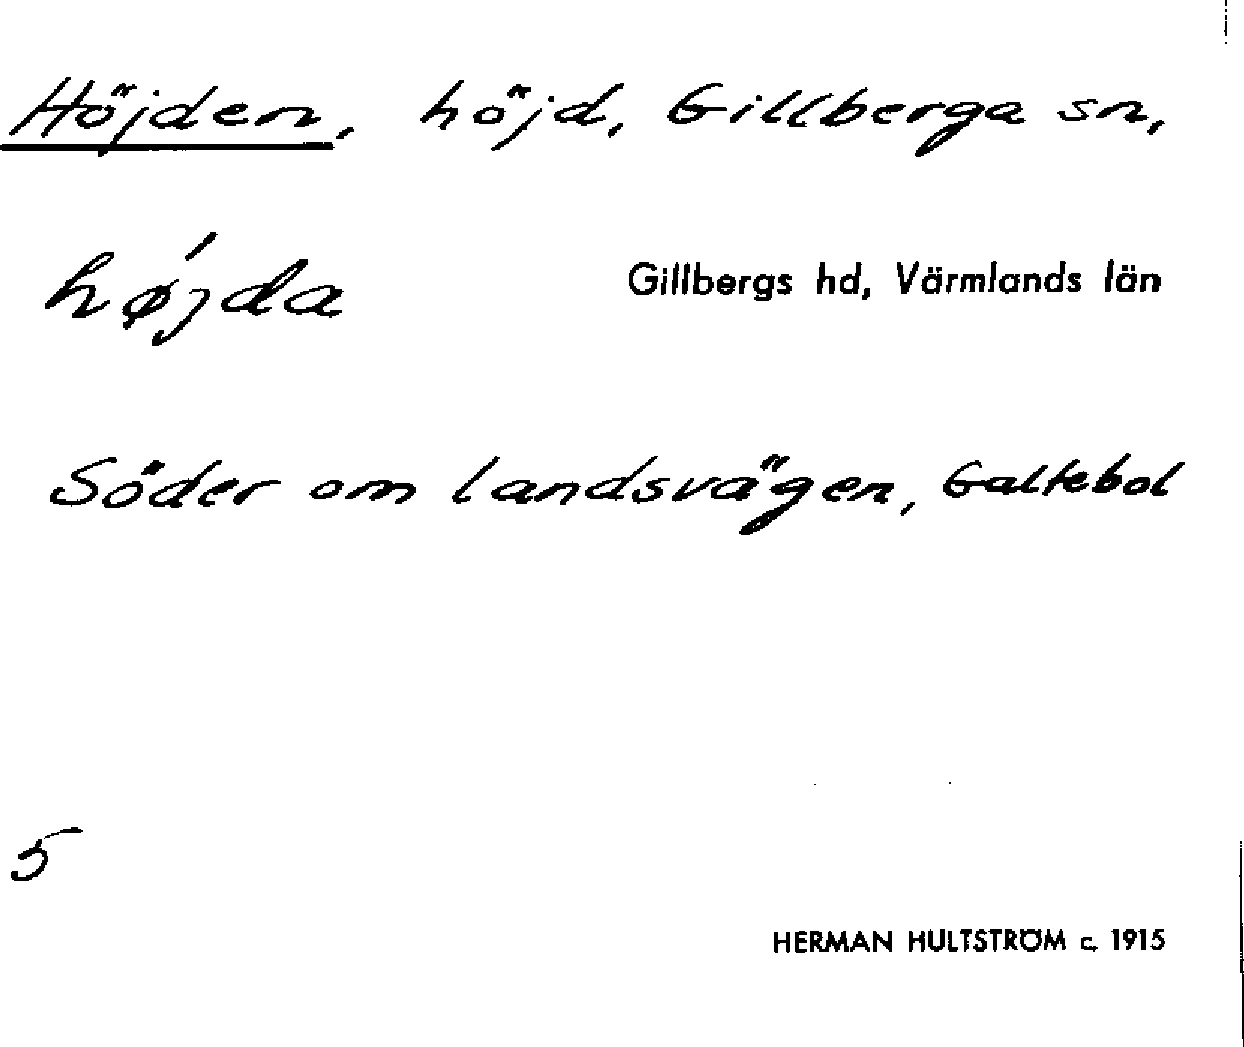 Höjden, höjd, Gillberga sn,
hǿjda
Gillbergs hd, Värmlands län
Söder om landsvägen, Galtebol
5
HERMAN HULTSTRÖM c. 1915